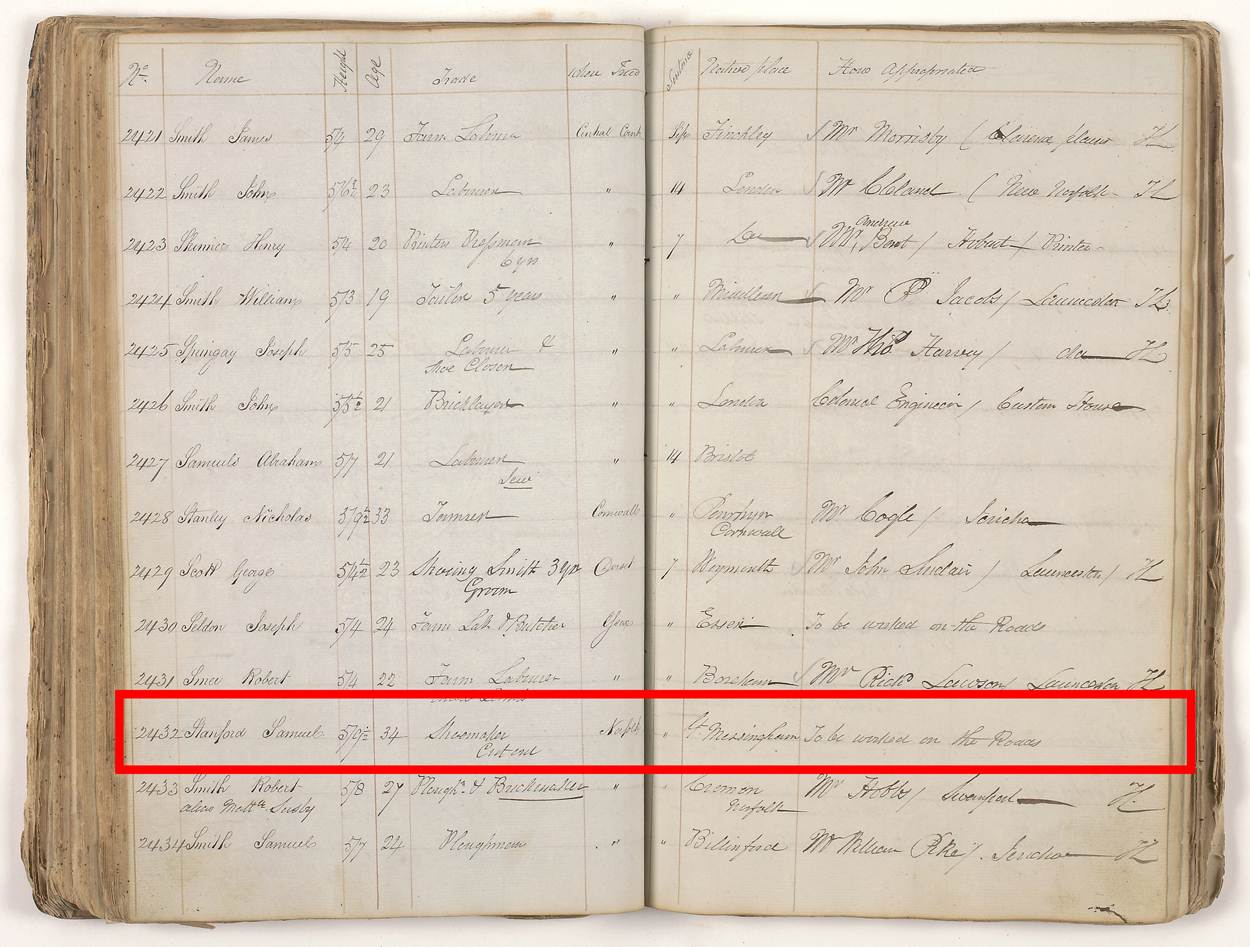 No. Name Height Age Trade Where Tried Sentence Native place How Appropriated
2421 Smith James 5/4 29 Farm Labourer Central Court Life Finchley Mr Morrisby ( Clarence plains
2422 Smith John 5/6½ 23 Labourer " 14 London Mr Cleland ( New Norfolk
Andrew
2423 Henry 5/4 20 Printers Pressman " 7 Do Mr. Bent / Hobart / Printer
6 yrs
2424 Smith William 5/3 19 Tailor 5 years " " Middlesex Mr Jacobs / Launceston
2425 Springay Joseph 5/5 25 Labourer & " " Mr Thos Harvey / do
Shoe Closer
2426 Smith John 5/5½ 21 Bricklayer " " London Colonial Engineer / Custom House
2427 Samuels Abraham 5/7 21 Labourer " 14 Bristol
Jew
2428 Stanley Nicholas 5/9½ 33 Cornwall " Penrhyn Mr Cogle / Jericho
Cornwall
2429 Scott George 5/4½ 23 Shoeing Smith 3 yrs Dorset 7 Weymouth Mr John Sinclair / Launceston /
Groom
2430 Seldon Joseph 5/4 24 Farm Lab. & Butcher Essex " Essex To be worked on the Roads
2431 Smee Robert 5/4 22 Farm Labourer " " Boreham Mr Richd Lawson / Launceston
2432 Stanford Samuel 34 Shoemaker Norfolk " Gt Massingham To be worked on the Roads
2433 Smith Robert 5/8 27 Plough. & Brickmaker " " Cromer Mr Hobbs / Swanport
alias Norfolk
2434 Smith Samuel 5/7 24 Ploughman " " Billinford Mr William Pike / Jericho